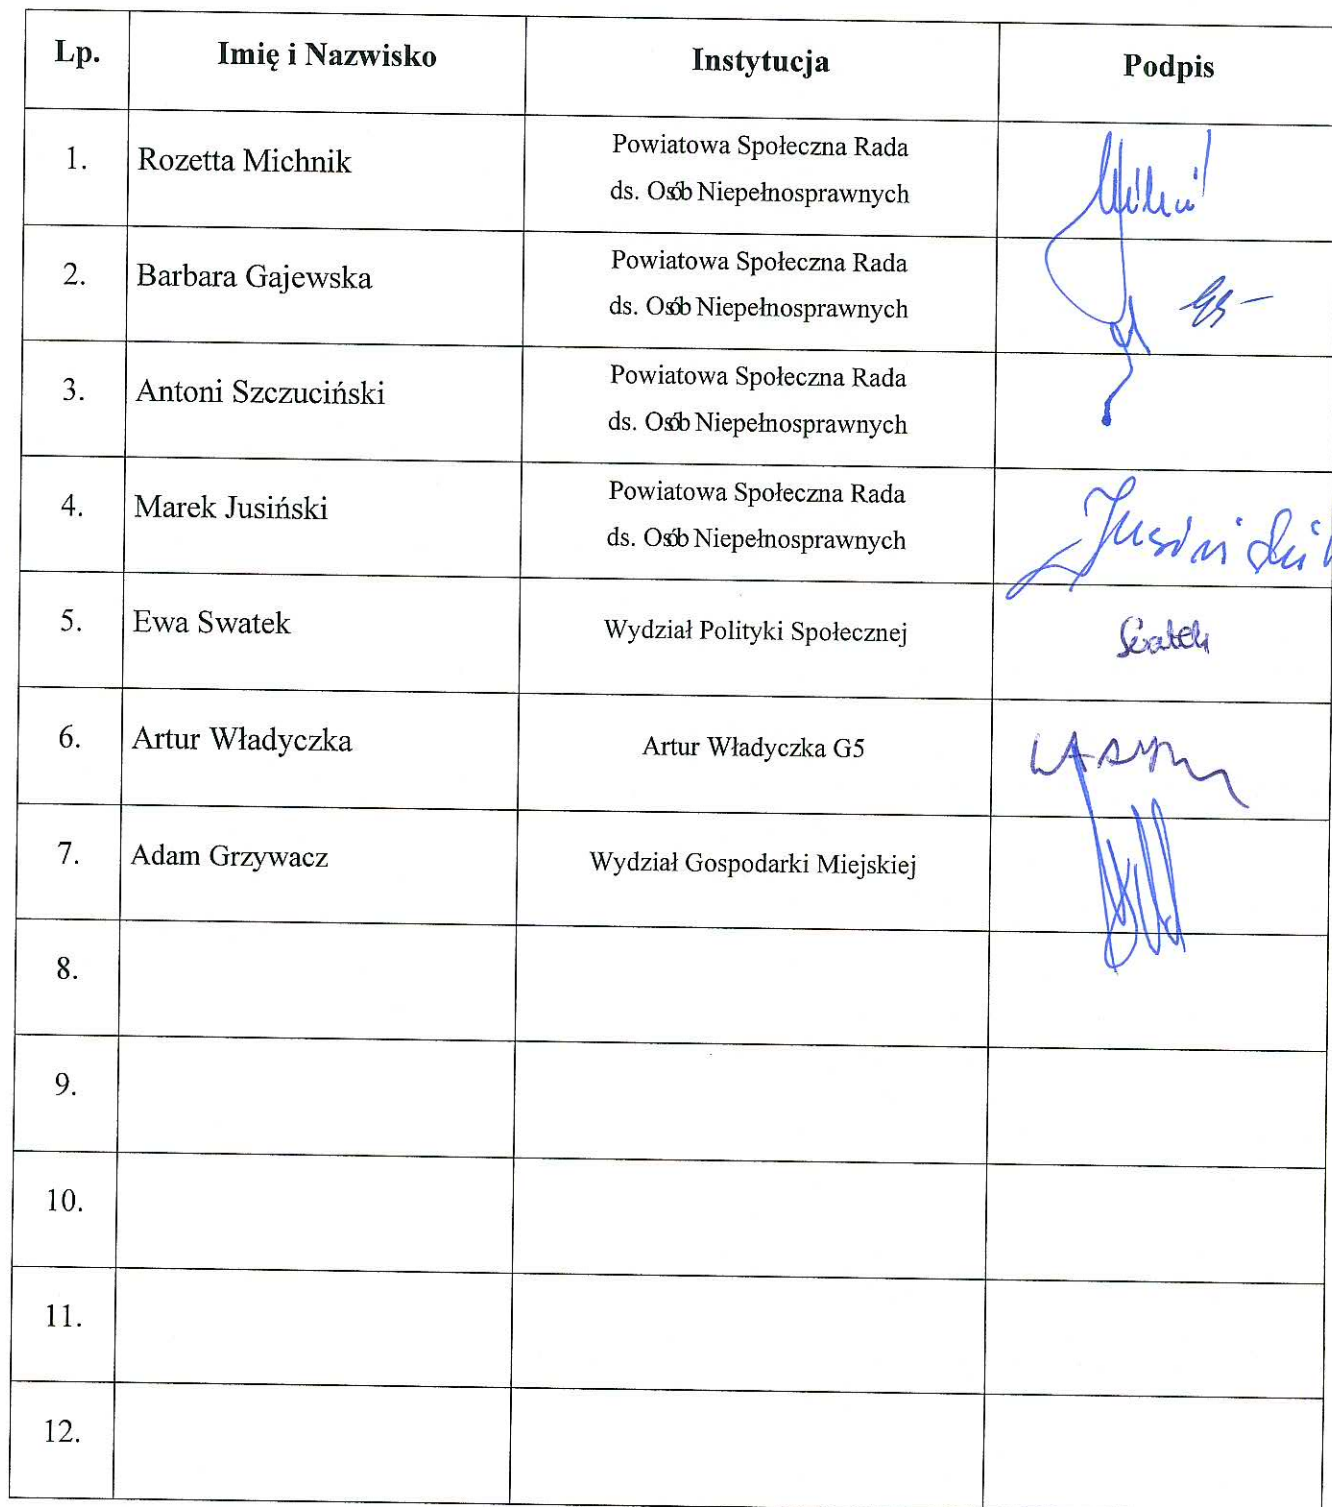 Lp. Imię i Nazwisko Instytucja Podpis
1. Rozetta Michnik Powiatowa Społeczna Rada
ds. Osób Niepełnosprawnych
2. Barbara Gajewska Powiatowa Społeczna Rada
ds. Osób Niepełnosprawnych
3. Antoni Szczuciński Powiatowa Społeczna Rada
ds. Osób Niepełnosprawnych
4. Marek Jusiński Powiatowa Społeczna Rada
ds. Osób Niepełnosprawnych Jusiński
5. Ewa Swatek Wydział Polityki Społecznej Swatek
6. Artur Władyczka Artur Władyczka G5
7. Adam Grzywacz Wydział Gospodarki Miejskiej
8.
9.
10.
11.
12.